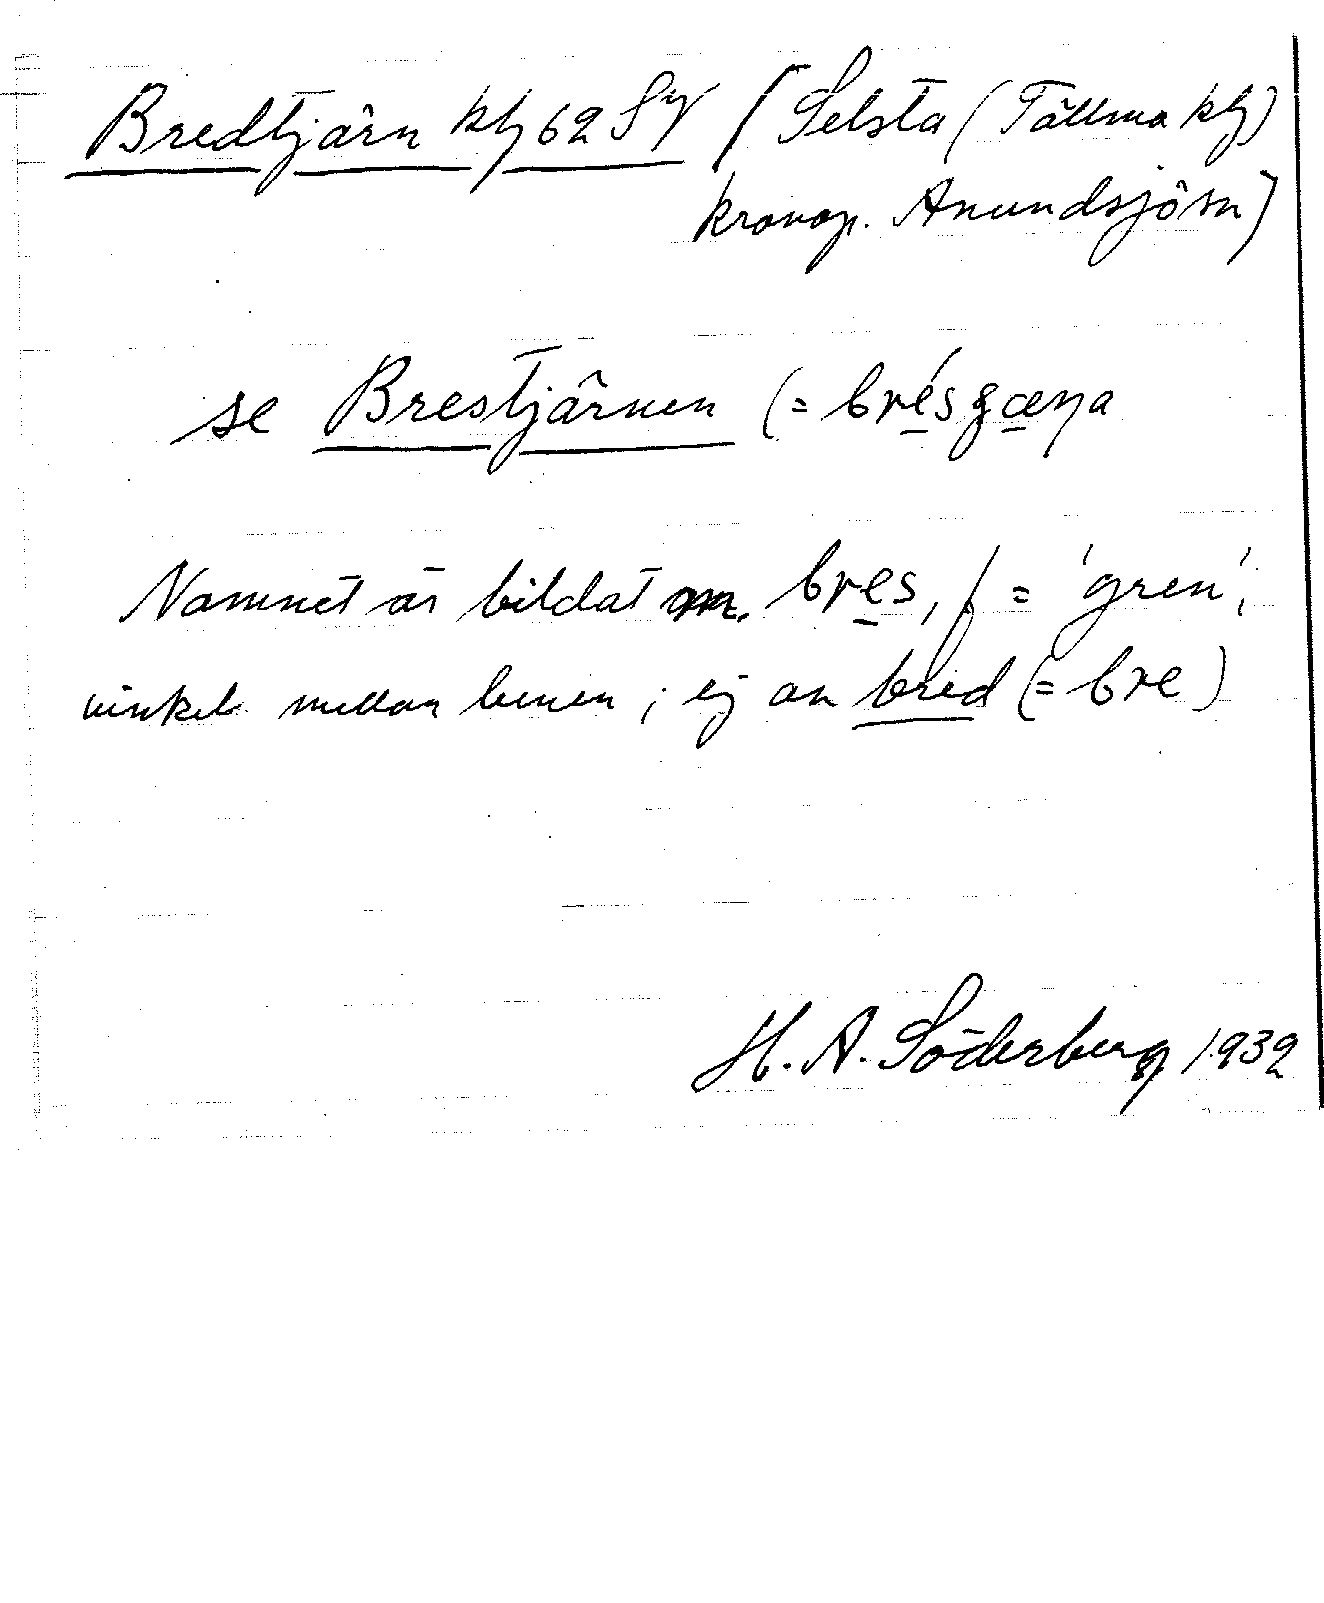 Bredtjärn kbl 62 Sy [Selsta (Tällma kbl)
kronop. Anundsjösn]
se Brestjärnen (= brésʒæɳa
Namnet är bildat av. bres, f = 'gren',
vinkel mellan benen; ej av bred (= bre)
H. A. Söderberg 1932